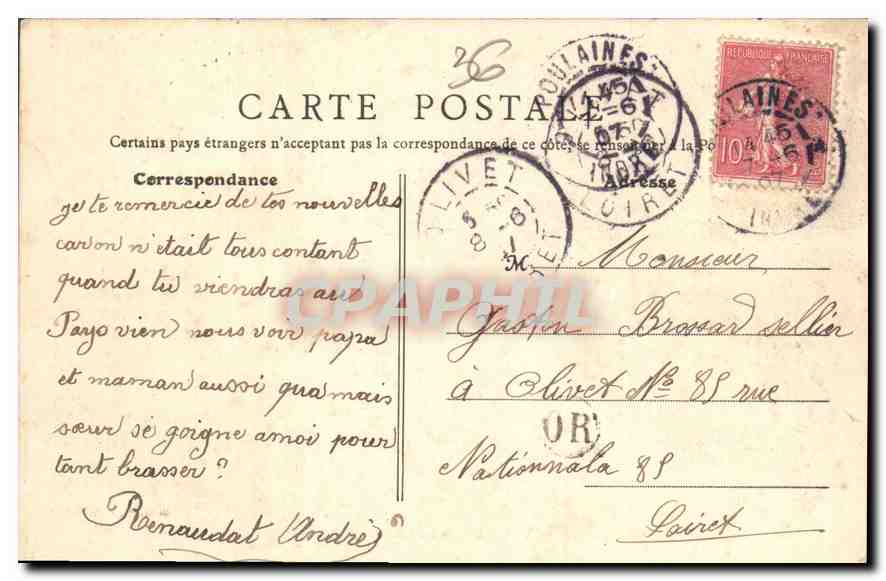 36
CARTE POSTALE
Certains pays étrangers n'acceptant pas la correspondance de ce côté, se renseigner à la Po
Correspondance
Adresse
je te remercie de tes nouvelles
car on n'était tous contant
quand tu viendras au
Payo vien nous voir papa
et maman aussi qua mais
sœur sé goigne a moi pour
tant brasser?
Renaudat André
M
Monsieur
Gaston Brossard sellier
à Olivet No 85 rue
Nationnala 85
Loiret
OR
POULAINES
INDRE
LOIRET
OLIVET
8 -6
RÉPUBLIQUE FRANÇAISE
10
CPAPHIL